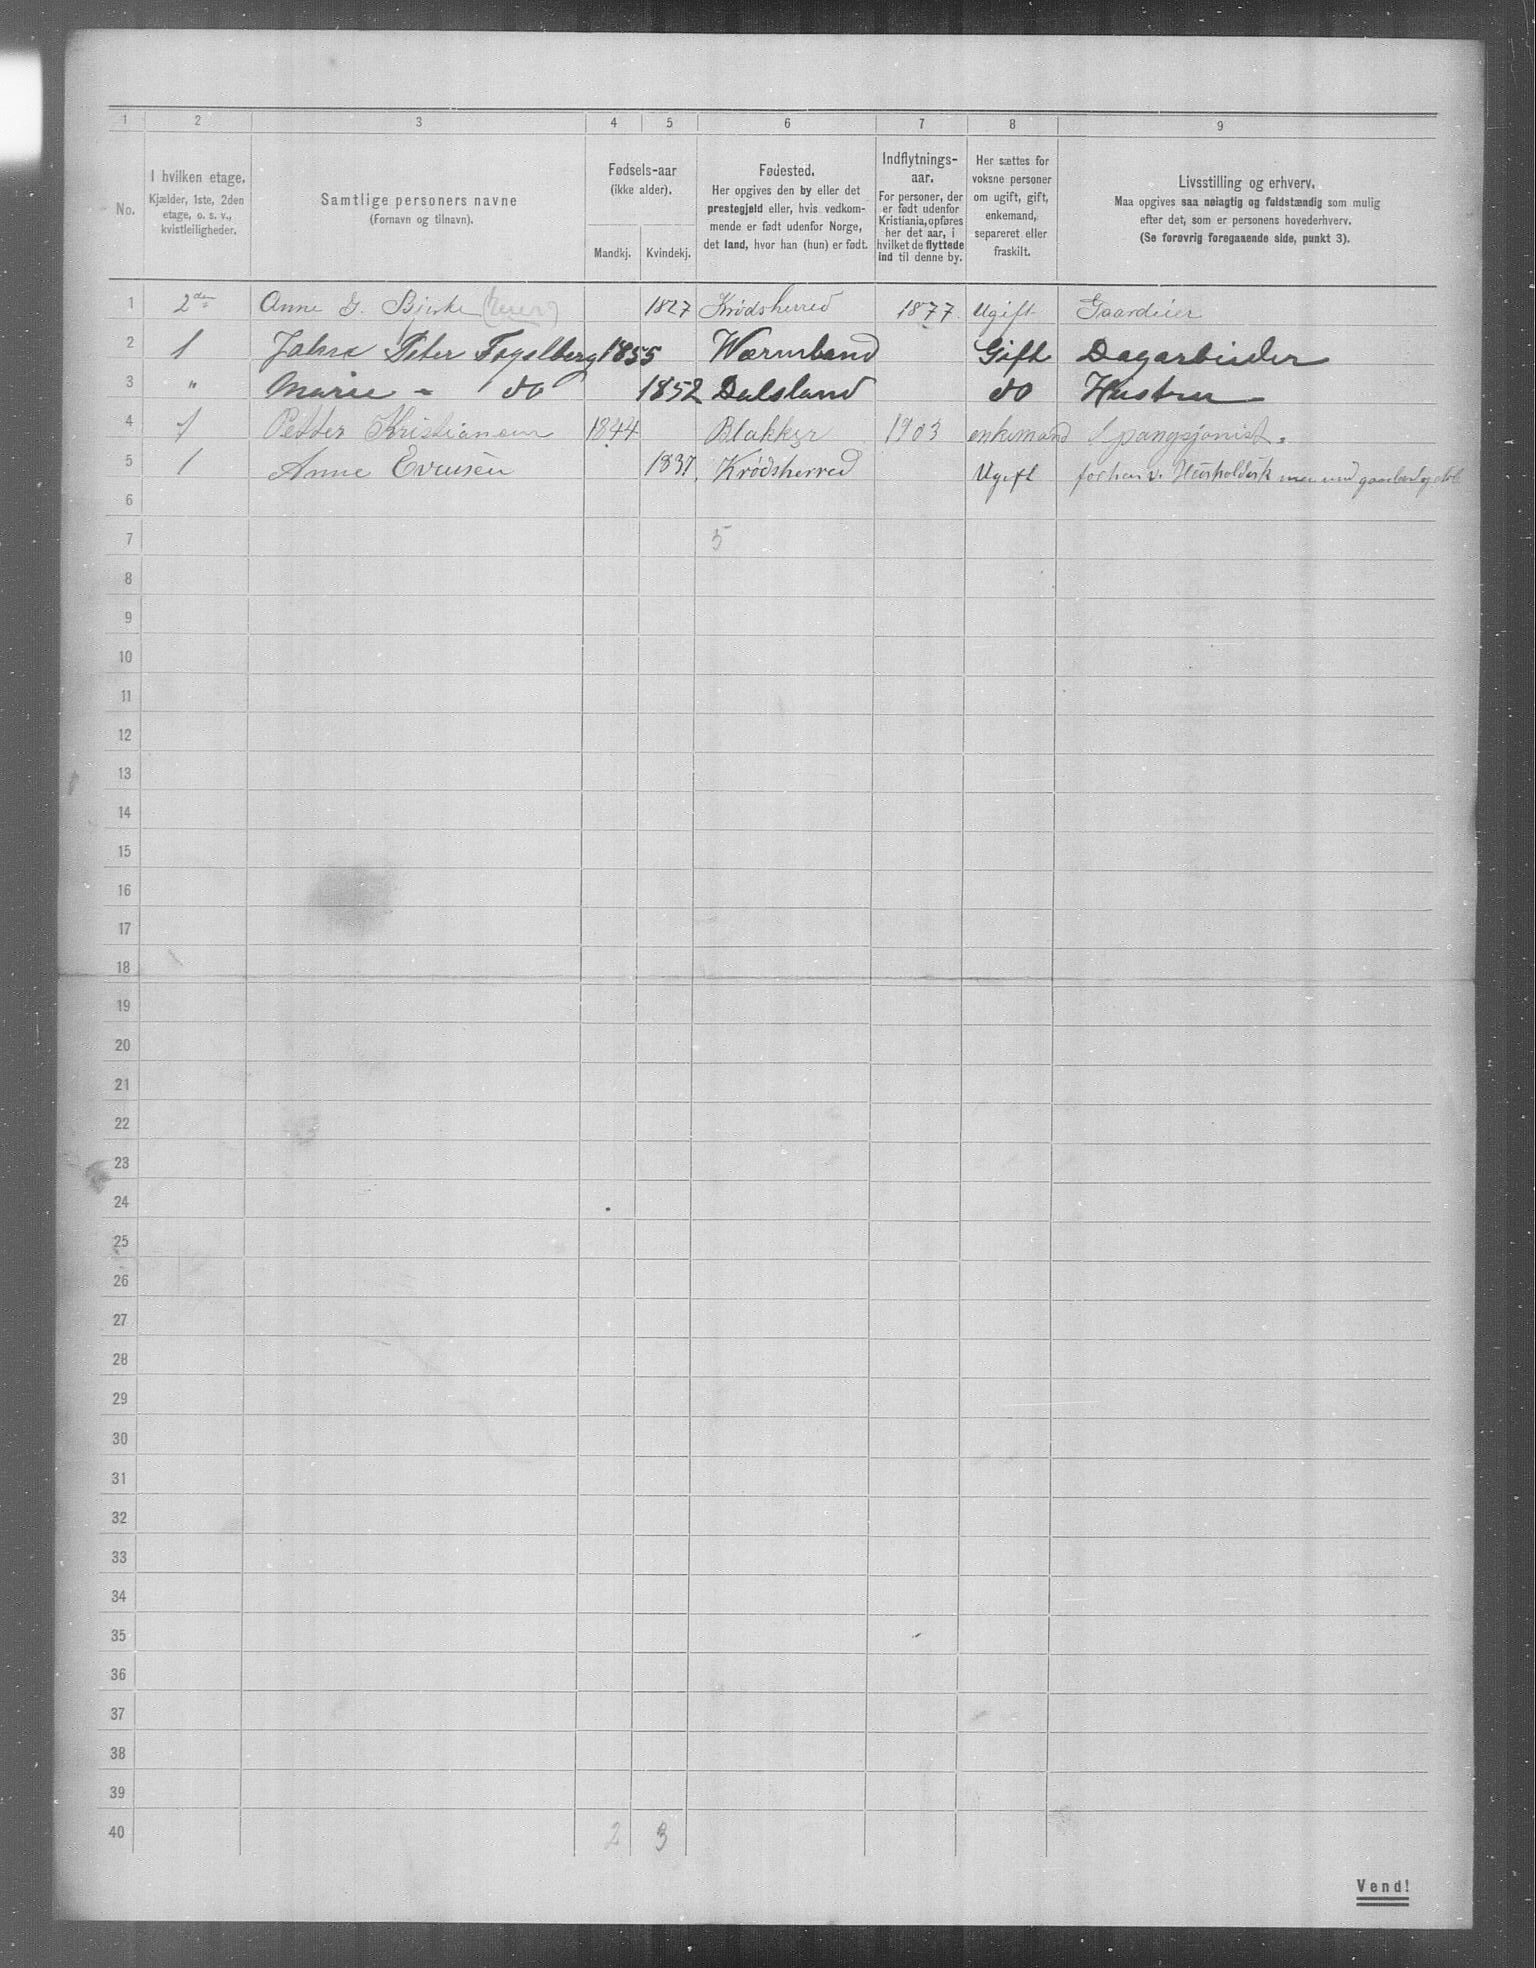 1 2 3 4 5 6 7 8 9
No.
I hvilken etage.
Kjælder, 1ste, 2den
etage, o. s. v.,
kvistleiligheder.
Samtlige personers navne
(Fornavn og tilnavn).
Fødsels-aar
(ikke alder).
Mandkj. Kvindekj.
Fødested.
Her opgives den by eller det
prestegjeld eller, hvis vedkom-
mende er født udenfor Norge,
det land, hvor han (hun) er født.
Indflytnings-
aar.
For personer, der
er født udenfor
Kristiania, opføres
her det aar, i
hvilket de flyttede
ind til denne by.
Her sættes for
voksne personer
om ugift, gift,
enkemand,
separeret eller
fraskilt.
Livsstilling og erhverv.
Maa opgives saa nøiagtig og fuldstændig som mulig
efter det, som er personens hovederhverv.
(Se forøvrig foregaaende side, punkt 3).
1 2den Anne G. Bjerke 1827 Krødsherred 1877 Ugift Gaardeier
2 1 Peter Fogelberg 1855 Wærmland Gift Dagarbeider
3 " Marie - do 1852 Dalsland do Hustru
4 1 Petter Kristiansen 1844 Blakker 1903 enkemand
5 1 Anne Evensen 1837 Krødsherred Ugift
6
7 5
8
9
10
11
12
13
14
15
16
17
18
19
20
21
22
23
24
25
26
27
28
29
30
31
32
33
34
35
36
37
38
39
40 2 3
Vend!